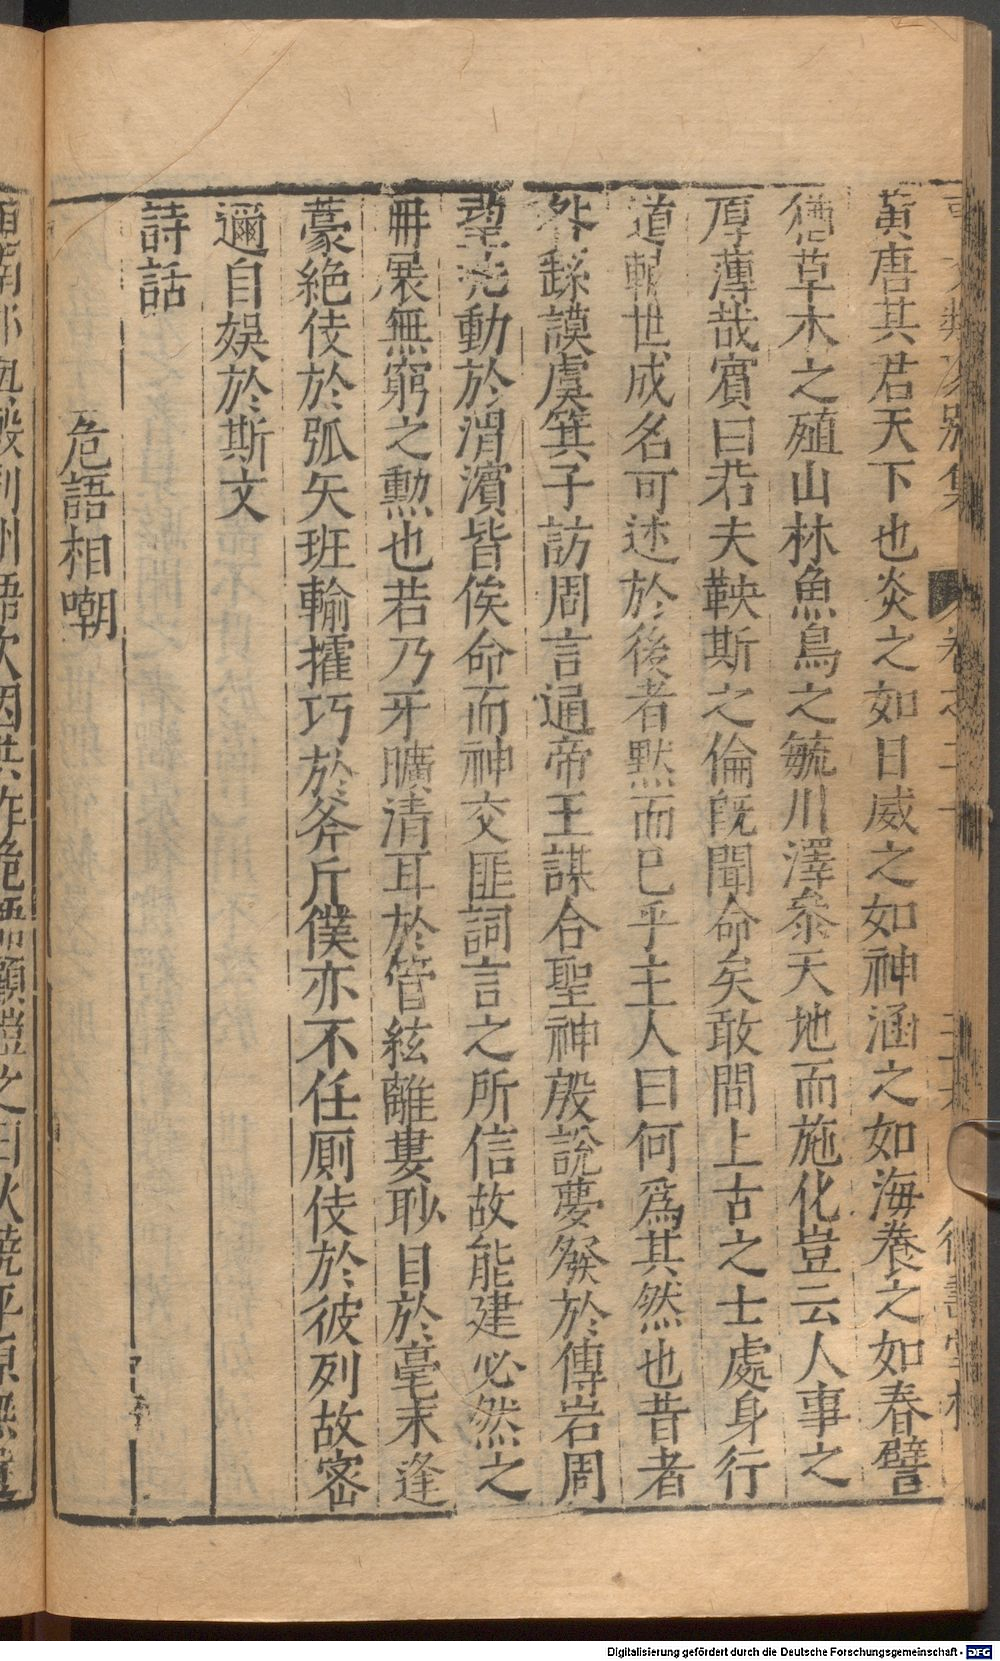 黃唐其君天下也炎之如日威之如神涵之如海養之如春譬
猶草木之殖山林魚鳥之毓川澤叅天地而施化豈云人事之
厚薄哉賓曰若夫鞅斯之倫旣聞命矣敢問上古之士處身行
道輔世成名可述於後者默而已乎主人曰何爲其然也昔者
咎繇謨虞箕子訪周言通帝王謀合聖神殷說夢發於傅岩周
望兆動於渭濱皆俟命而神交匪詞言之所信故能建必然之
冊展無窮之勲也若乃牙曠清耳於管絃離婁眇目於毫末逢
蒙絶伎於弧矢班輸擅巧於斧斤僕亦不任厠伎於彼列故密
邇自娛於斯文
詩話
危語相嘲
Digitalisierung gefördert durch die Deutsche Forschungsgemeinschaft - DFG